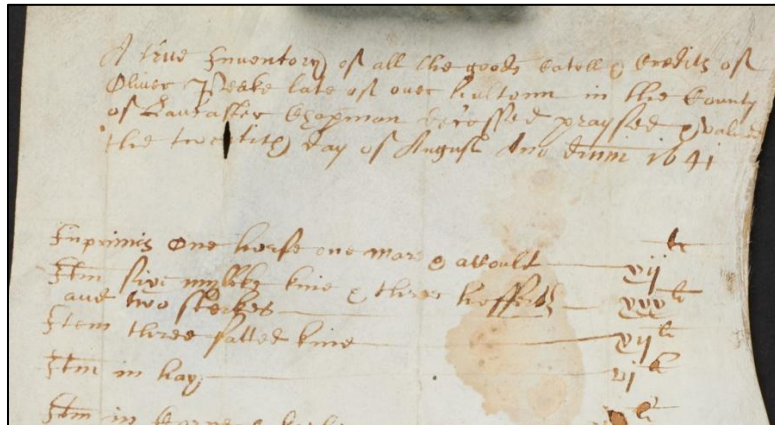 A true Inventory of all the goods Catell & Creditts of
Oliver Peake late of over hultonn in the County
of Lancaster Chapman decessed praysed & valued
the twentith day of August Ano dmni 1641
Inprimis One horse one mare & a ffoult vij li
Itm six mylke kine & three heffers xxx li
and two sterkes
Item three fatted kine vij li
Itm in hay vj li
Itm in li